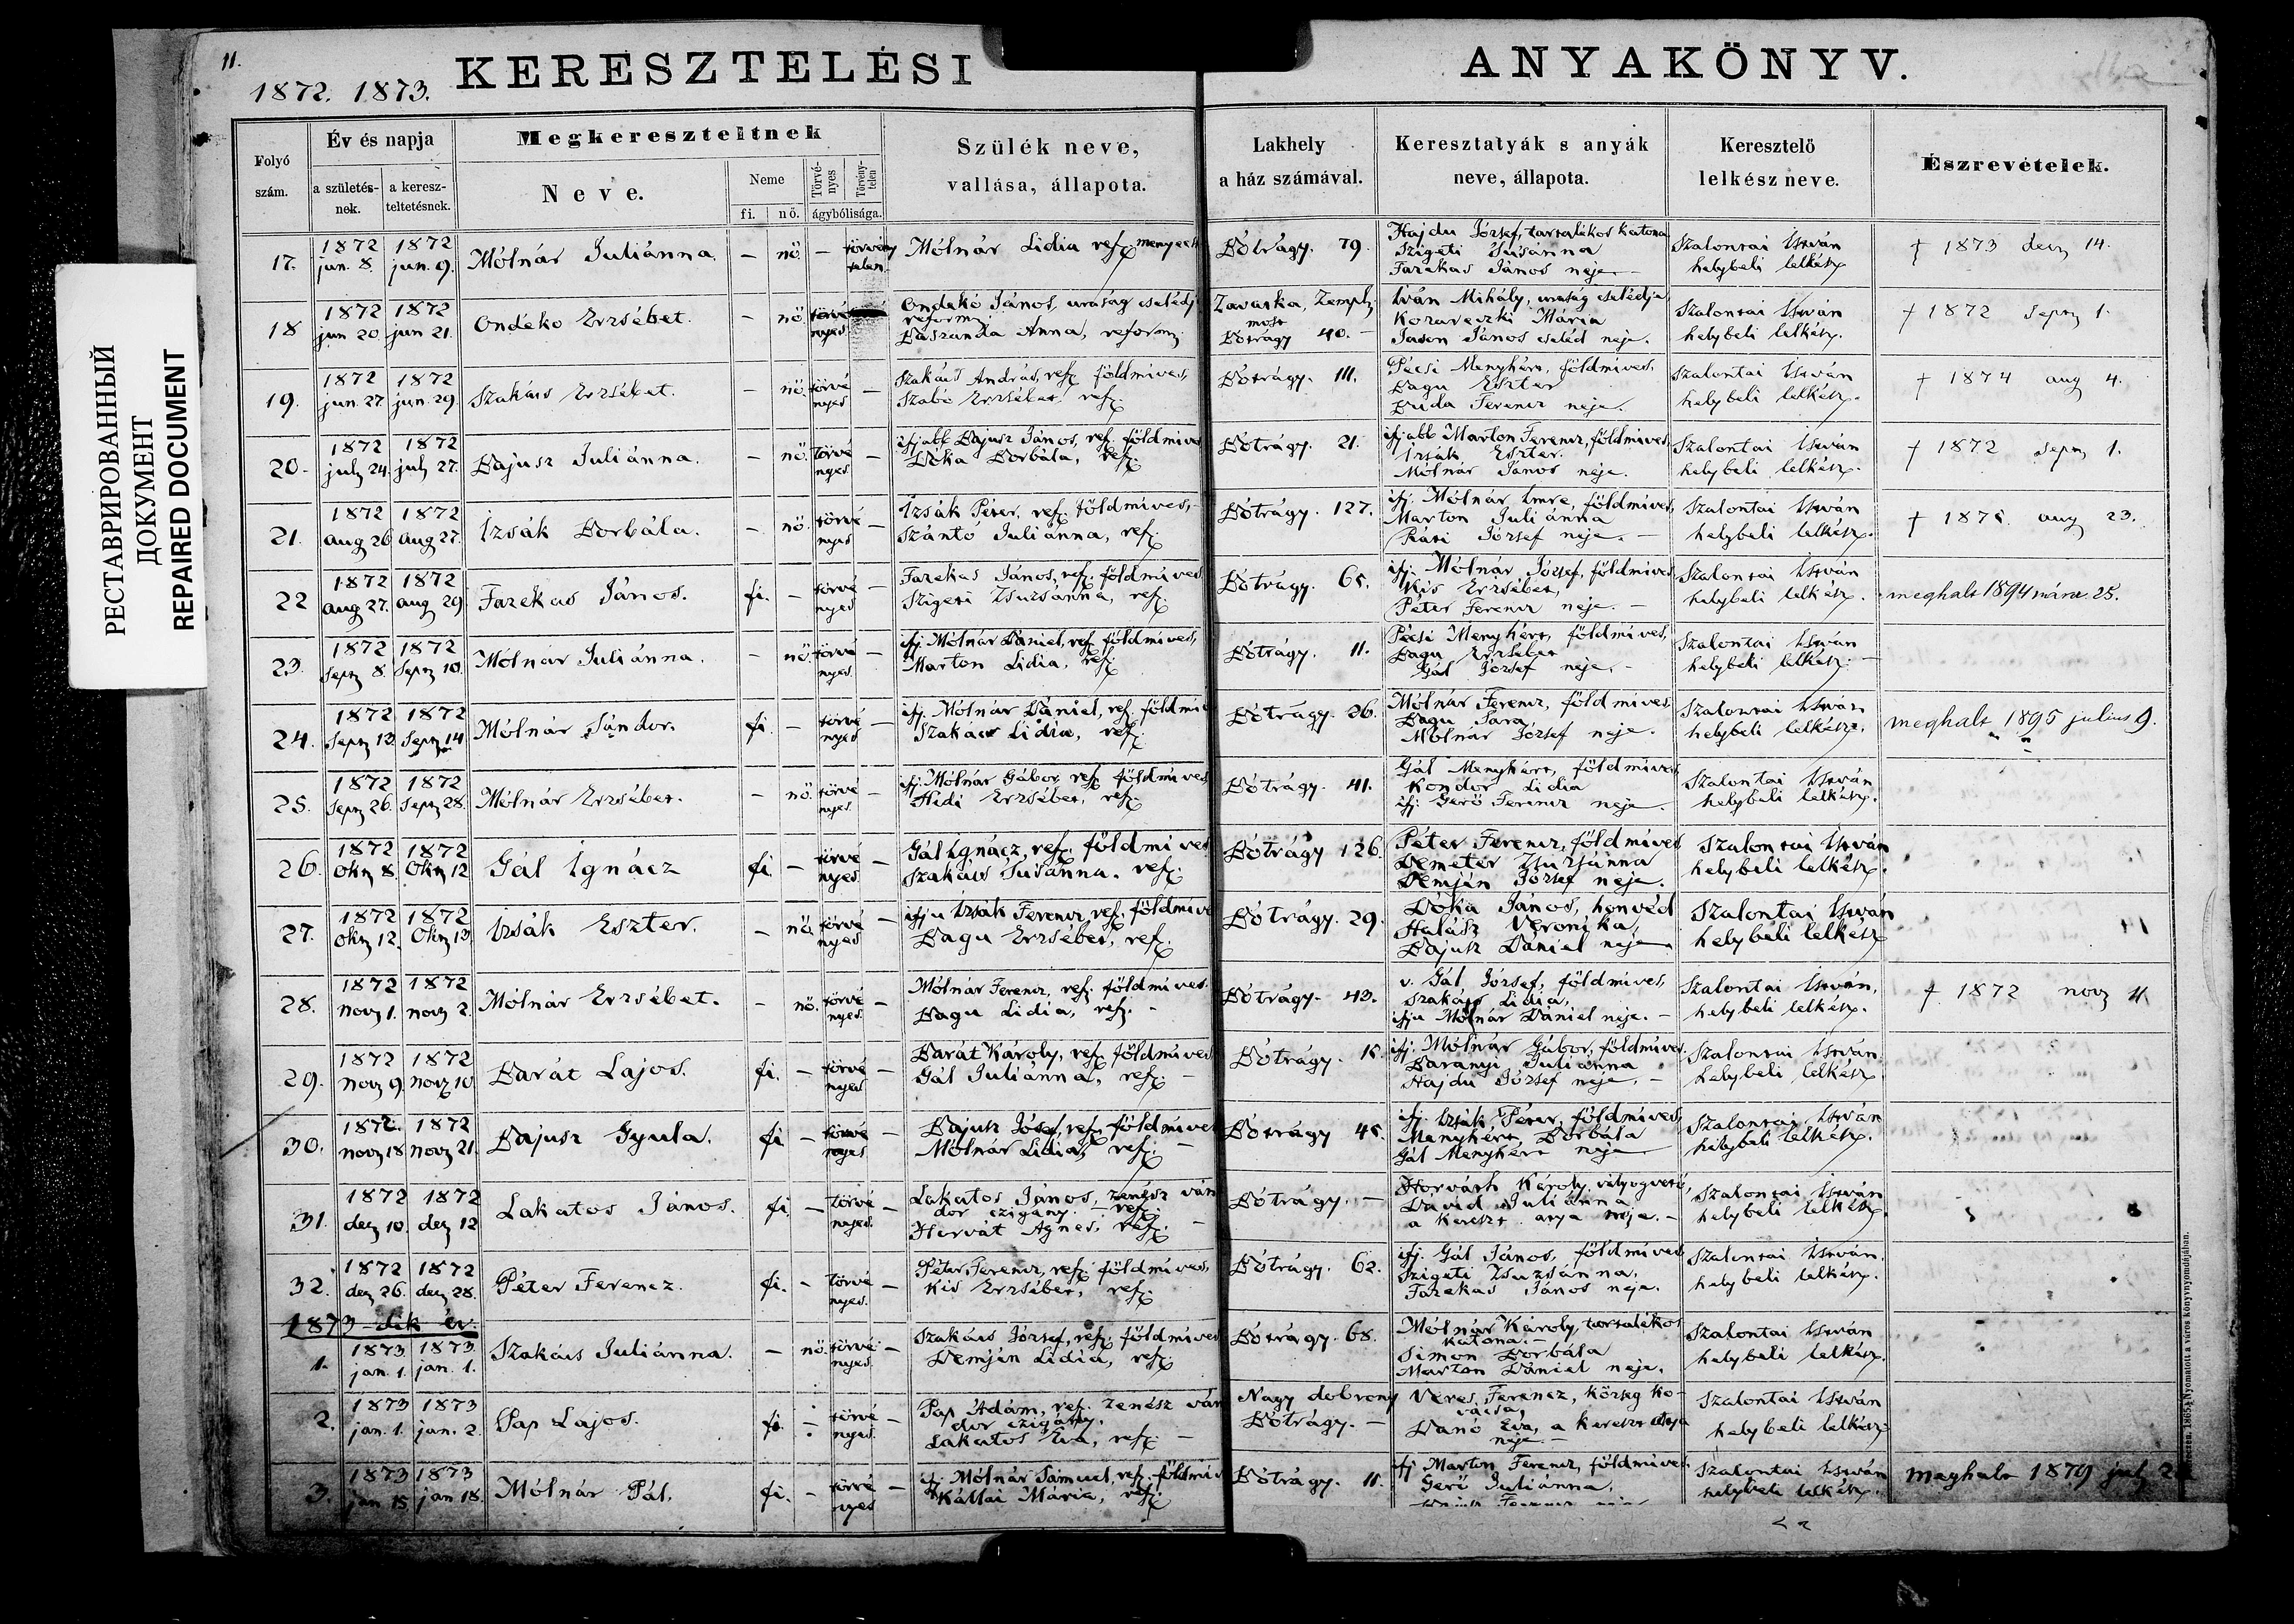 11.
1872. 1873.
KERESZTELÉSI ANYAKÖNYV.
РЕСТАВРИРОВАННЫЙ
ДОКУМЕНТ
REPAIRED DOCUMENT
Folyó szám.
Év és napja
a születés-nek.
a keresz-teltetésnek.
Megkereszteltnek
Neve.
Neme
fi.
nő.
Törvé-nyes
Törvény-telen
ágybólisága.
Szülék neve,
vallása, állapota.
Lakhely
a ház számával.
Keresztatyák s anyák
neve, állapota.
Keresztelő
lelkész neve.
Észrevételek.
17. 1872 jun. 8. 1872 jun. 9. Mólnár Juliánna. — nő. — törvény telen. Mólnár Lidia ref. menyecs Bótrágy. 79. Hajdu József, tartalékos katona Szigeti Susánna Fazekas János neje — Szalontai István helybeli lelkész † 1873 decz 14.
18 1872 jun 20. 1872 jun 21. Ondéko Erzsébet. — nő törvé nyes Ondekó János, uraság cselédj reform. Anna, reform. Zavatka, Zempl. most Bótrágy 40. — Iván Mihály, uraság cselédje, Mária János cseléd neje. Szalontai István helybeli lelkész. † 1872 Sept 1.
19. 1872 jun. 27 1872 jun. 29. Szakács Erzsébet. — nő. törvé nyes — Szakács András, ref. földmives, Szabó Erzsébet ref. Bótrágy. 111. Pécsi Menyhért, földmives. Bagu Eszter Buda Ferencz neje. Szalontai István helybeli lelkész. † 1874 aug 4.
20. 1872 july 24. 1872 july 27. Bajusz Juliánna. — nő. törvé nyes — ifjabb Bajusz János, ref. földmives Dóka Borbála, ref. Bótrágy. 21. ifjabb Marton Ferencz, földmives, Izsák Eszter. Mólnár János neje. Szalontai István helybeli lelkész. † 1872 sept 1.
21. 1872 aug 26 1872 aug 27. Izsák Borbála. — nő. törvé nyes — Izsák Péter, ref. földmives, Szántó Juliánna, ref. Bótrágy. 127. ifj. Mólnár Imre, földmives, Marton Juliánna József neje. — Szalontai István helybeli lelkész. † aug 23.
22 1872 aug 27. 1872 aug 29 Fazekas János. fi. — törvé nyes — Fazekas János, ref. földmives Szigeti Zsuzsánna, ref. Bótrágy. 65. ifj. Mólnár József, földmives Kis Erzsébet, Péter Ferencz neje. — Szalontai István helybeli lelkész. meghalt 1894 márcz 25.
23. 1872 Sept 8. 1872 Sept 10. Mólnár Juliánna. — nő. törvé nyes. — ifj. Mólnár Dániel, ref. földmives, Marton Lidia, ref. Bótrágy. 11. Pécsi Menyhért, földmives, Bagu Erzsébet Gál József neje. — Szalontai István helybeli lelkész. —
24. 1872 Sept 13. 1872 Sept 14 Mólnár Sándor. fi — törvé nyes — ifj. Mólnár Dániel, ref. földmi Szakács Lidia, ref. Bótrágy. 26. Mólnár Ferencz, földmives Bagu Sára, Mólnár József neje. Szalontai István helybeli lelkész. meghalt 1895 julius 9.
25. 1872 Sept 26. 1872 Sept 28. Mólnár Erzsébet. — nő. törvé nyes. — ifj. Mólnár Gábor, ref. földmives Hidi Erzsébet, ref. Bótrágy. 41. Gál Menyhért, földmives, Kondor Lidia ifj. Gerő Ferencz neje. Szalontai István helybeli lelkész.
26. 1872 Okt 8. 1872 Okt 12 Gál Ignácz fi — törvé nyes — Gál Ignácz, ref. földmives Szakács Susánna. ref. Bótrágy 126. Péter Ferencz, földmives Demeter Zsuzsánna Demján József neje. Szalontai István helybeli lelkész.
27. 1872 Okt 12. 1872 Okt 13. Izsák Eszter. — nő. törvé nyes — ifju Izsák Ferencz, ref. földmive Bagu Erzsébet, ref. Bótrágy. 29. Dóka János, honvéd Halász Veronika, Bajusz Dániel neje Szalontai István helybeli lelkész
28. 1872 novz 1. 1872 novz 2. Mólnár Erzsébet. — nő. törvé nyes. — Mólnár Ferencz, ref. földmives. Bagu Lidia, ref. — Bótrágy. 43. v. Gál József, földmives, Szakács Lidia, ifju Mólnár Dániel neje. — Szalontai István, helybeli lelkész. † 1872 novz 11.
29. 1872 novz 9. 1872 novz 10 Barát Lajos. fi. — törvé nyes — Barát Károly, ref. földmives Gál Juliánna, ref. — Bótrágy. 15. ifj. Mólnár Gábor, földmives. Baranyi Juliánna Hajdu József neje. — Szalontai István. helybeli lelkész.
30. 1872. novz 18 1872 novz 21. Bajusz Gyula. fi — törvé nyes — Bajusz Jósef, ref. földmives Mólnár Lidia, ref. — Bótrágy 45. ifj. Izsák Péter, földmives, Menyhért Borbála Gál Menyhért neje Szalontai István helybeli lelkész.
31. 1872 decz 10. 1872 decz 12 Lakatos János. fi. — törvé nyes. — Lakatos János, zenész ván dor czigány. — ref. Horvát Agnes. ref. — Bótrágy. — Horváth Károly, vályogvető, Dávid Juliánna a kereszt atya neje. — Szalontai István helybeli lelkész.
32. 1872 decz 26. 1872 decz 28. Péter Ferencz. fi. — törvé nyes. — Péter Ferencz, ref. földmives, Kis Erzsébet, ref. Bótrágy. 62. ifj. Gál János, földmives Szigeti Zsuzsánna, Fazekas János neje. Szalontai István. helybeli lelkész.
1873 dik év.
1. 1873 jan. 1. 1873. jan. 1. Szakács Juliánna. — nő. törvé nyes. — Szakács József, ref. földmives Demján Lidia, ref. Bótrágy. 68. Mólnár Károly, tartalékos katona. — Simon Borbála Marton Dániel neje. Szalontai István helybeli lelkész.
2. 1873 jan. 1. 1873 jan. 2. Pap Lajos. fi. — törvé nyes. — Pap Ádám, ref. zenész ván dor czigány. Lakatos Éva, ref. — Nagy dobrony Bótrágy. — Veres Ferencz, község ko- vácsa, Danó Éva, a kereszt atya neje. — Szalontai István helybeli lelkész
3. 1873 jan 15. 1873 jan 18. Mólnár Pál. fi. — törvé nyes — ifj. Mólnár Sámuel, ref. földmiv Kállai Mária, ref. Bótrágy. 11. ifj. Marton Ferencz, földmives. Gerő Juliánna, Szalontai István helybeli lelkész. meghalt 1879 july